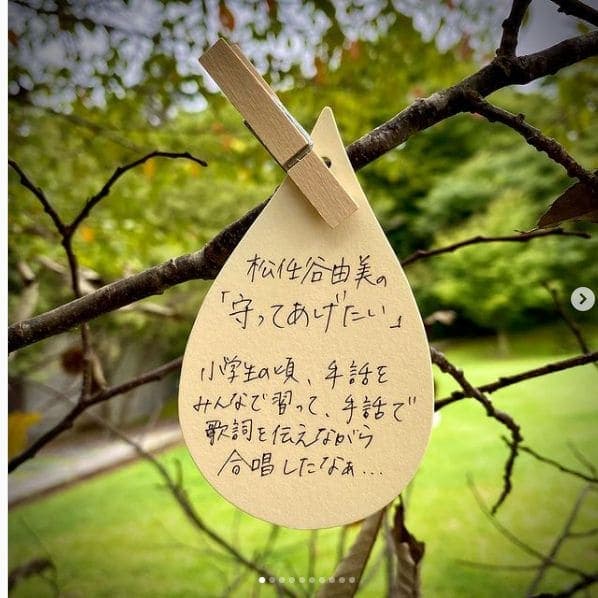 松任谷由美の
「守ってあげたい」
小学生の頃、手話を
みんなで習って、手話で
歌詞を伝えながら
合唱したなぁ…